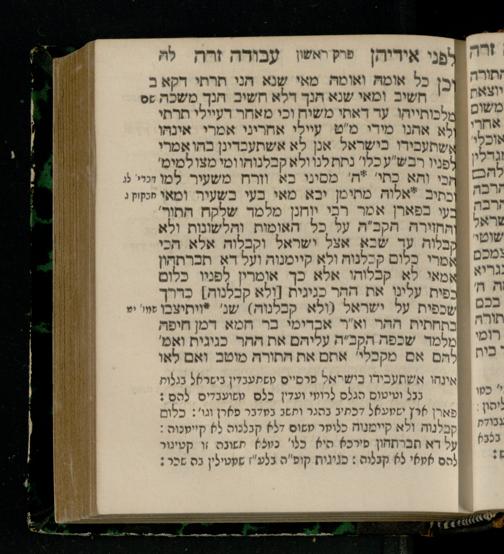 לפני אידיהן פרק ראשון עבודה זרה לה
וכן כל אומה ואומה מאי שנא הני תרתי דקא ב
חשיב ומאי שנא הנך דלא חשיב הנך משכה שם
מלכותייהו עד דאתי משיח וכי מאחר דעיילי תרתי
ולא אהנו מידי מ"ט עיילי אחריני אמרי אינהו
אשתעבידו בישראל אנן לא אשתעבדינן בהו אמרי
לפניו רבש"ע כלו' נתת לנו ולא קבלנוהו ומי מצו למימ'
הכי והא כתי' *ה' מסיני בא וזרח משעיר למו דברי' לג
וכתיב *אלוה מתימן יבא מאי בעי בשעיר ומאי חבקוק ג
בעי בפארן אמר רבי יוחנן מלמד שלקח התור'
והחזירה הקב"ה על כל האומות והלשונות ולא
קבלוה עד שבא אצל ישראל וקבלוה אלא הכי
אמרי כלום קבלנוה ולא קיימנוה ועל דא תברתהון
אמאי לא קבלוהו אלא כך אומרין לפניו כלום
כפית עלינו את ההר כגיגית [ולא קבלנוה] כדרך
שכפית על ישראל (ולא קבלנוה) שנ' *ויתיצבו שמו' יט
בתחתית ההר וא"ר אבדימי בר חמא דמן חיפה
מלמד שכפה הקב"ה עליהם את ההר כגיגית ואמ'
להם אם מקבלי' אתם את התורה מוטב ואם לאו
אינהו אשתעבידו בישראל פרסיים משתעבדין בישראל בגלות
בבל וטיטום הגלם לרומי ועדין כלם משועבדים להם :
פארן ארץ ישמעאל דכתיב בהגר וישב במדבר פארן וגו' : כלום
קבלנוה ולא קיימנוה כלומר משום דלא קבלנוה לא קיימנוה :
על דא תברתהון פירכא היא כלו' במלא תשובה זו קטיגור
להם אמאי לא קבלוה : כגיגית קופ"ה בלע"ז שמטילין בה שכר :